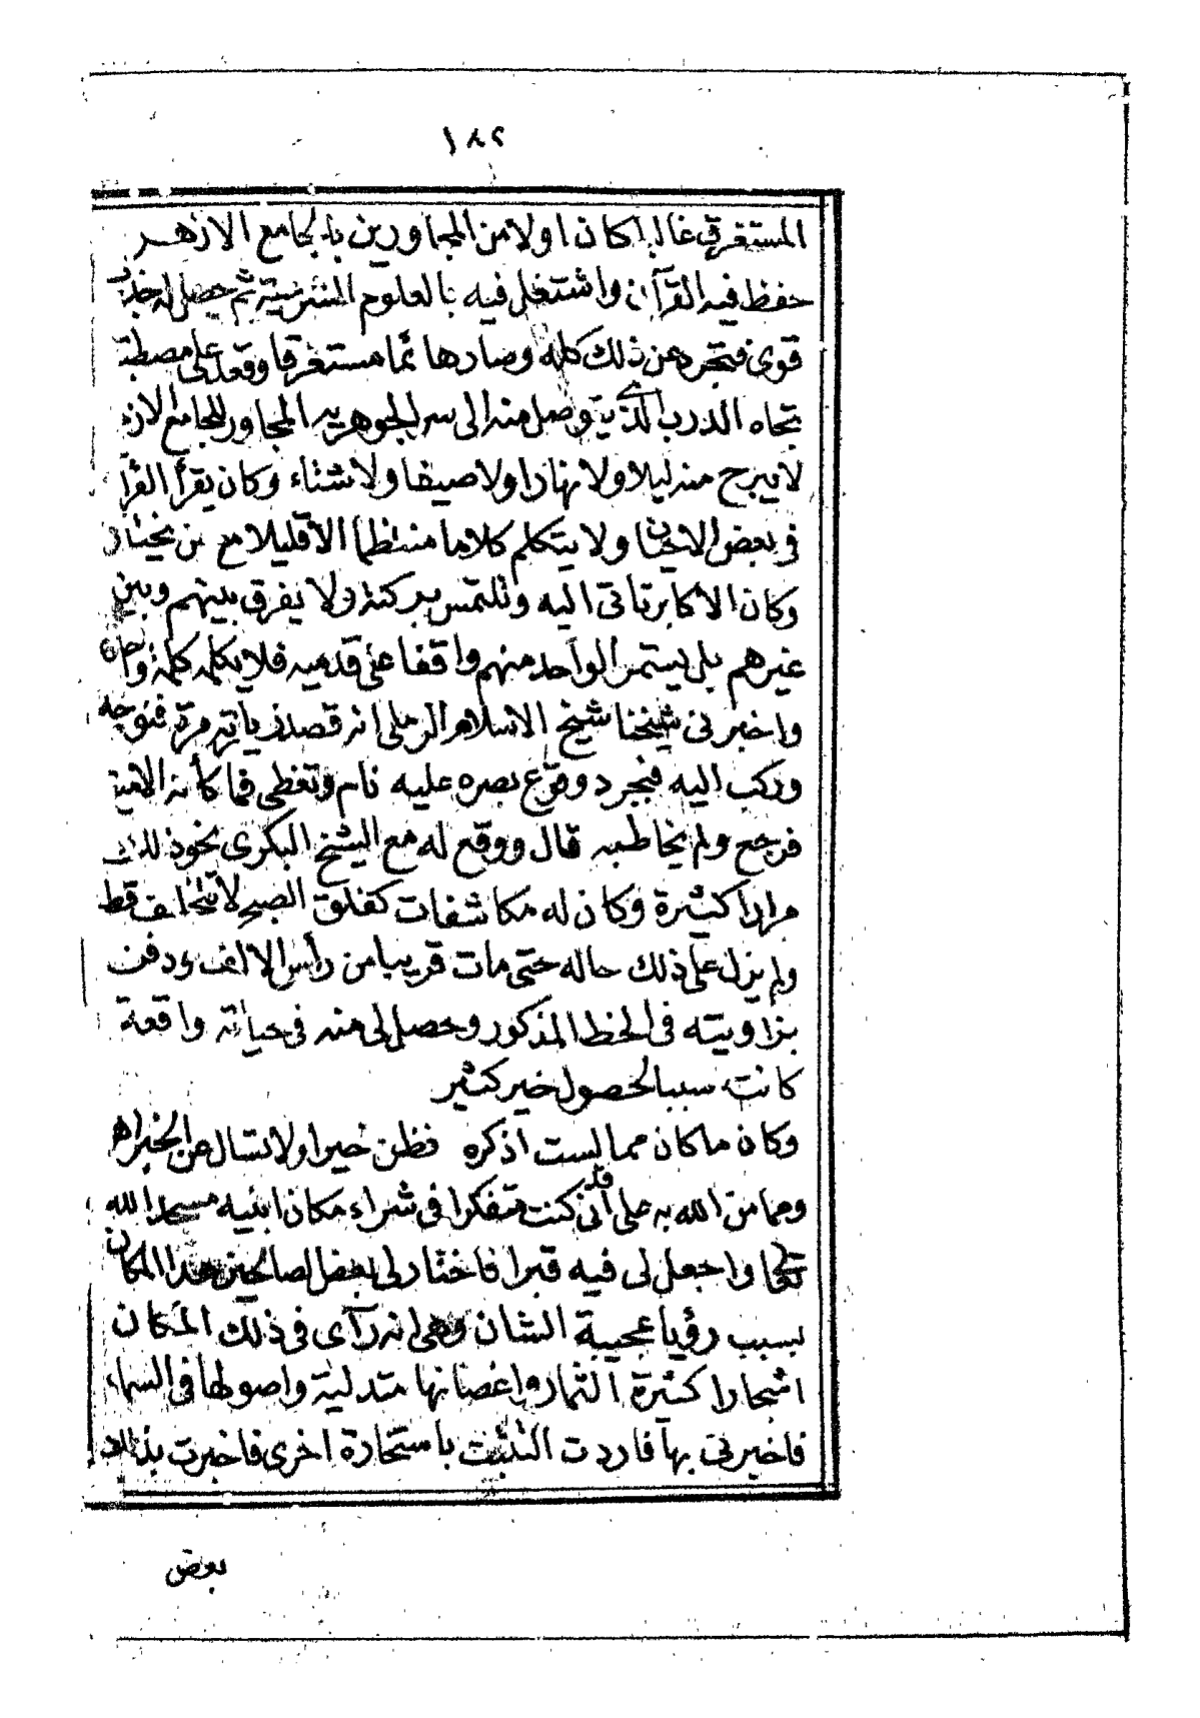 ١٨٢
المستغرق غالبا كان اولا من المجاورين بالجامع الازهر
حفظ فيه القرآن واشتغل فيه بالعلوم الشرعية ثم حصل له جذب
قوى فتجرد عن ذلك كله وصار هائما مستغرقا وقعد على مصطبة
تجاه الدرب الذى يتوصل منه الى سر الجوهريه المجاور للجامع الازه
لا يبرح منه ليلا ولا نهارا ولا صيفا ولا شتاء وكان يقرأ القرآ
فى بعض الاحيان ولا يتكلم كلاما منتظما الا قليلا مع من يختار
وكان الاكابر تاتى اليه وتلتمس بركته ولا يفرق بينهم وبين
غيرهم بل يستمر الواحد منهم واقفا على قدميه فلا يكلمه كلمة واحدة
واخبرنى شيخنا شيخ الاسلام الرملى انه قصد زيارته مرة فتوجه
وركب اليه فبجرد وقوع بصره عليه نام وتغطى فما كأنه الا ميت
فرجع ولم يخاطبه قال ووقع له مع الشيخ البكرى نحو ذلك
مرارا كثيرة وكان له مكاشفات كفلق الصبح لا تتخلف قط
ولم يزل على ذلك حاله حتى مات قريبا من رأس الالف ودفن
بزاويته فى الخط المذكور وحصل لى منه فى حياته واقعة
كانت سببا لحصول خير كثير
وكان ما كان مما لست اذكره فظن خيرا ولا تسال عن الخبر اه
ومما من الله به على انى قد كنت متفكرا فى شراء مكان ابنيه مسجدا لله
تعالى واجعل لى فيه قبرا فاختار لى بعض الصالحين هذا المكان
بسبب رؤيا عجيبة الشان وهى انه رآى فى ذلك المكان
اشجارا كثيرة الثمار واغصانها متدلية واصولها فى السماء
فاخبرنى بها فاردت التثبت باستخارة اخرى فاخبرت بذلك
بعض